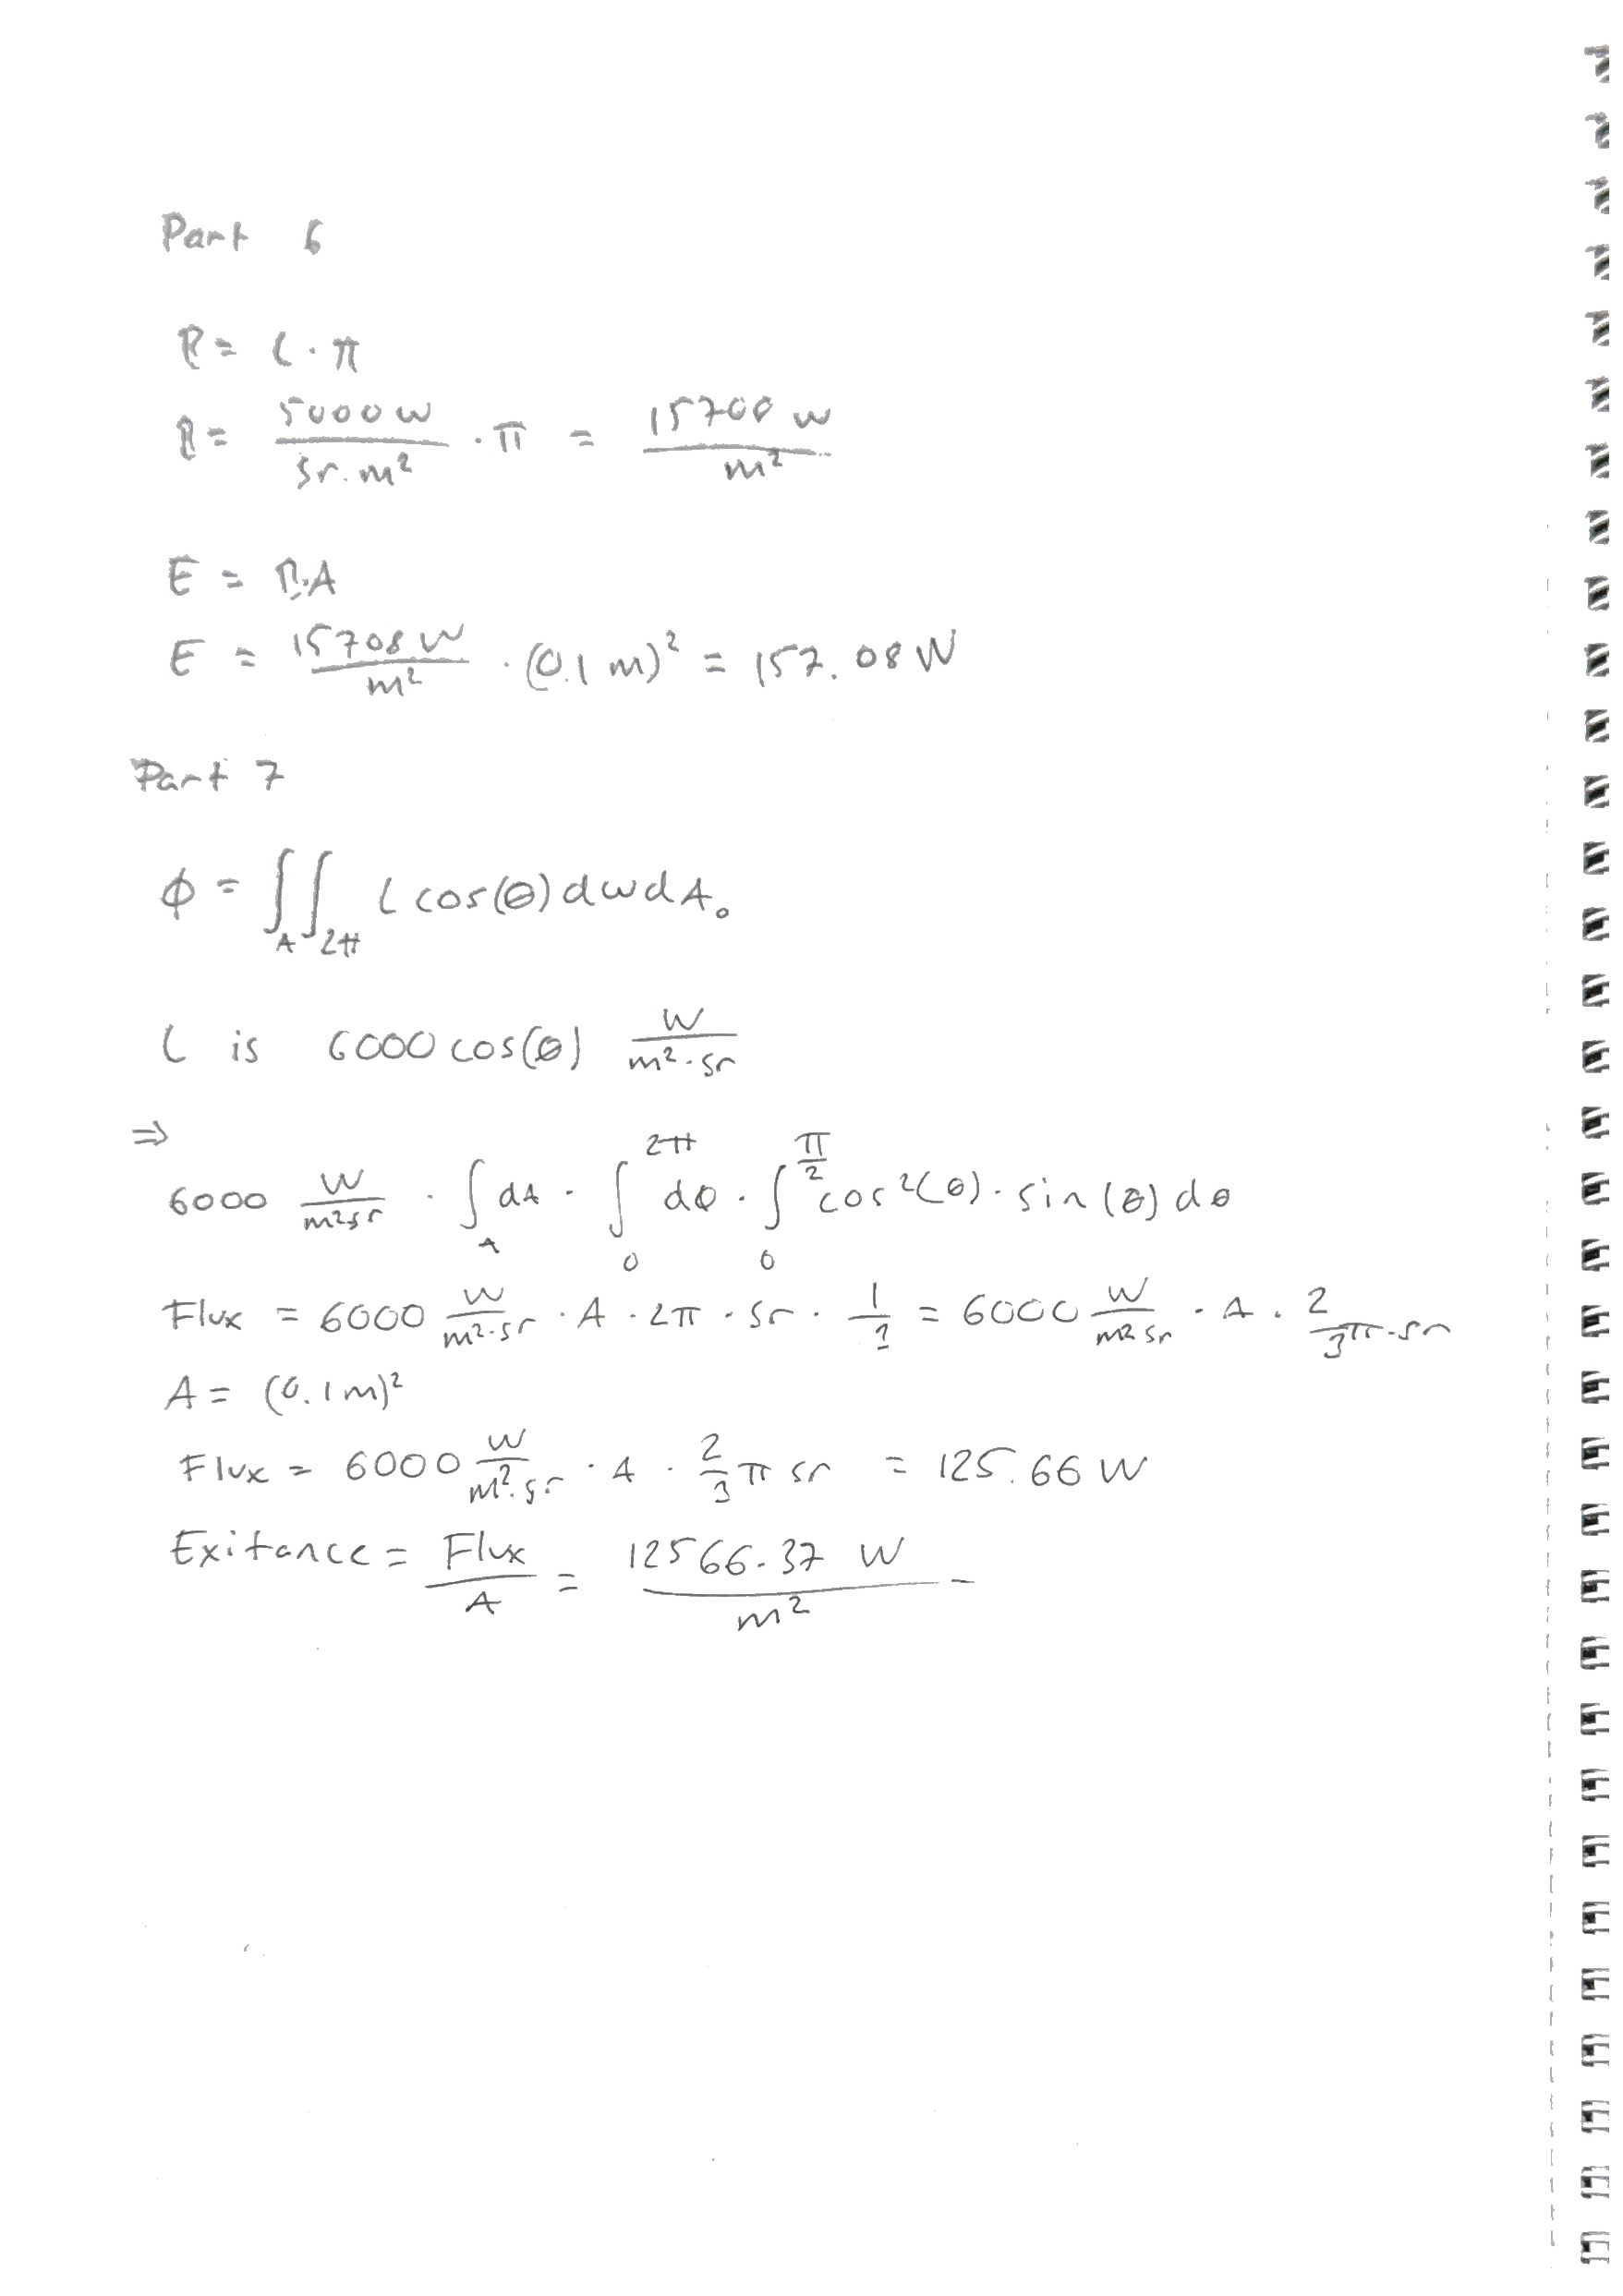 Part 6
R = L · π
R = 5000 W / sr. m² · π = 15708 W / m²
E = R.A
E = 15708 W / m² · (0.1 m)² = 157.08 W
Part 7
ϕ = ∫∫ L cos(θ) dω dA.
A 2π
L is 6000 cos(θ) W / m² · sr
⇒
6000 W / m² sr · ∫_A dA · ∫_0^2π dφ · ∫_0^π/2 cos²(θ) · sin(θ) dθ
Flux = 6000 W / m² · sr · A · 2π · sr · 1 / 3 = 6000 W / m² sr · A · 2 / 3 π · sr
A = (0.1 m)²
Flux = 6000 W / m² · sr · A · 2/3 π sr = 125.66 W
Exitance = Flux / A = 12566.37 W / m²